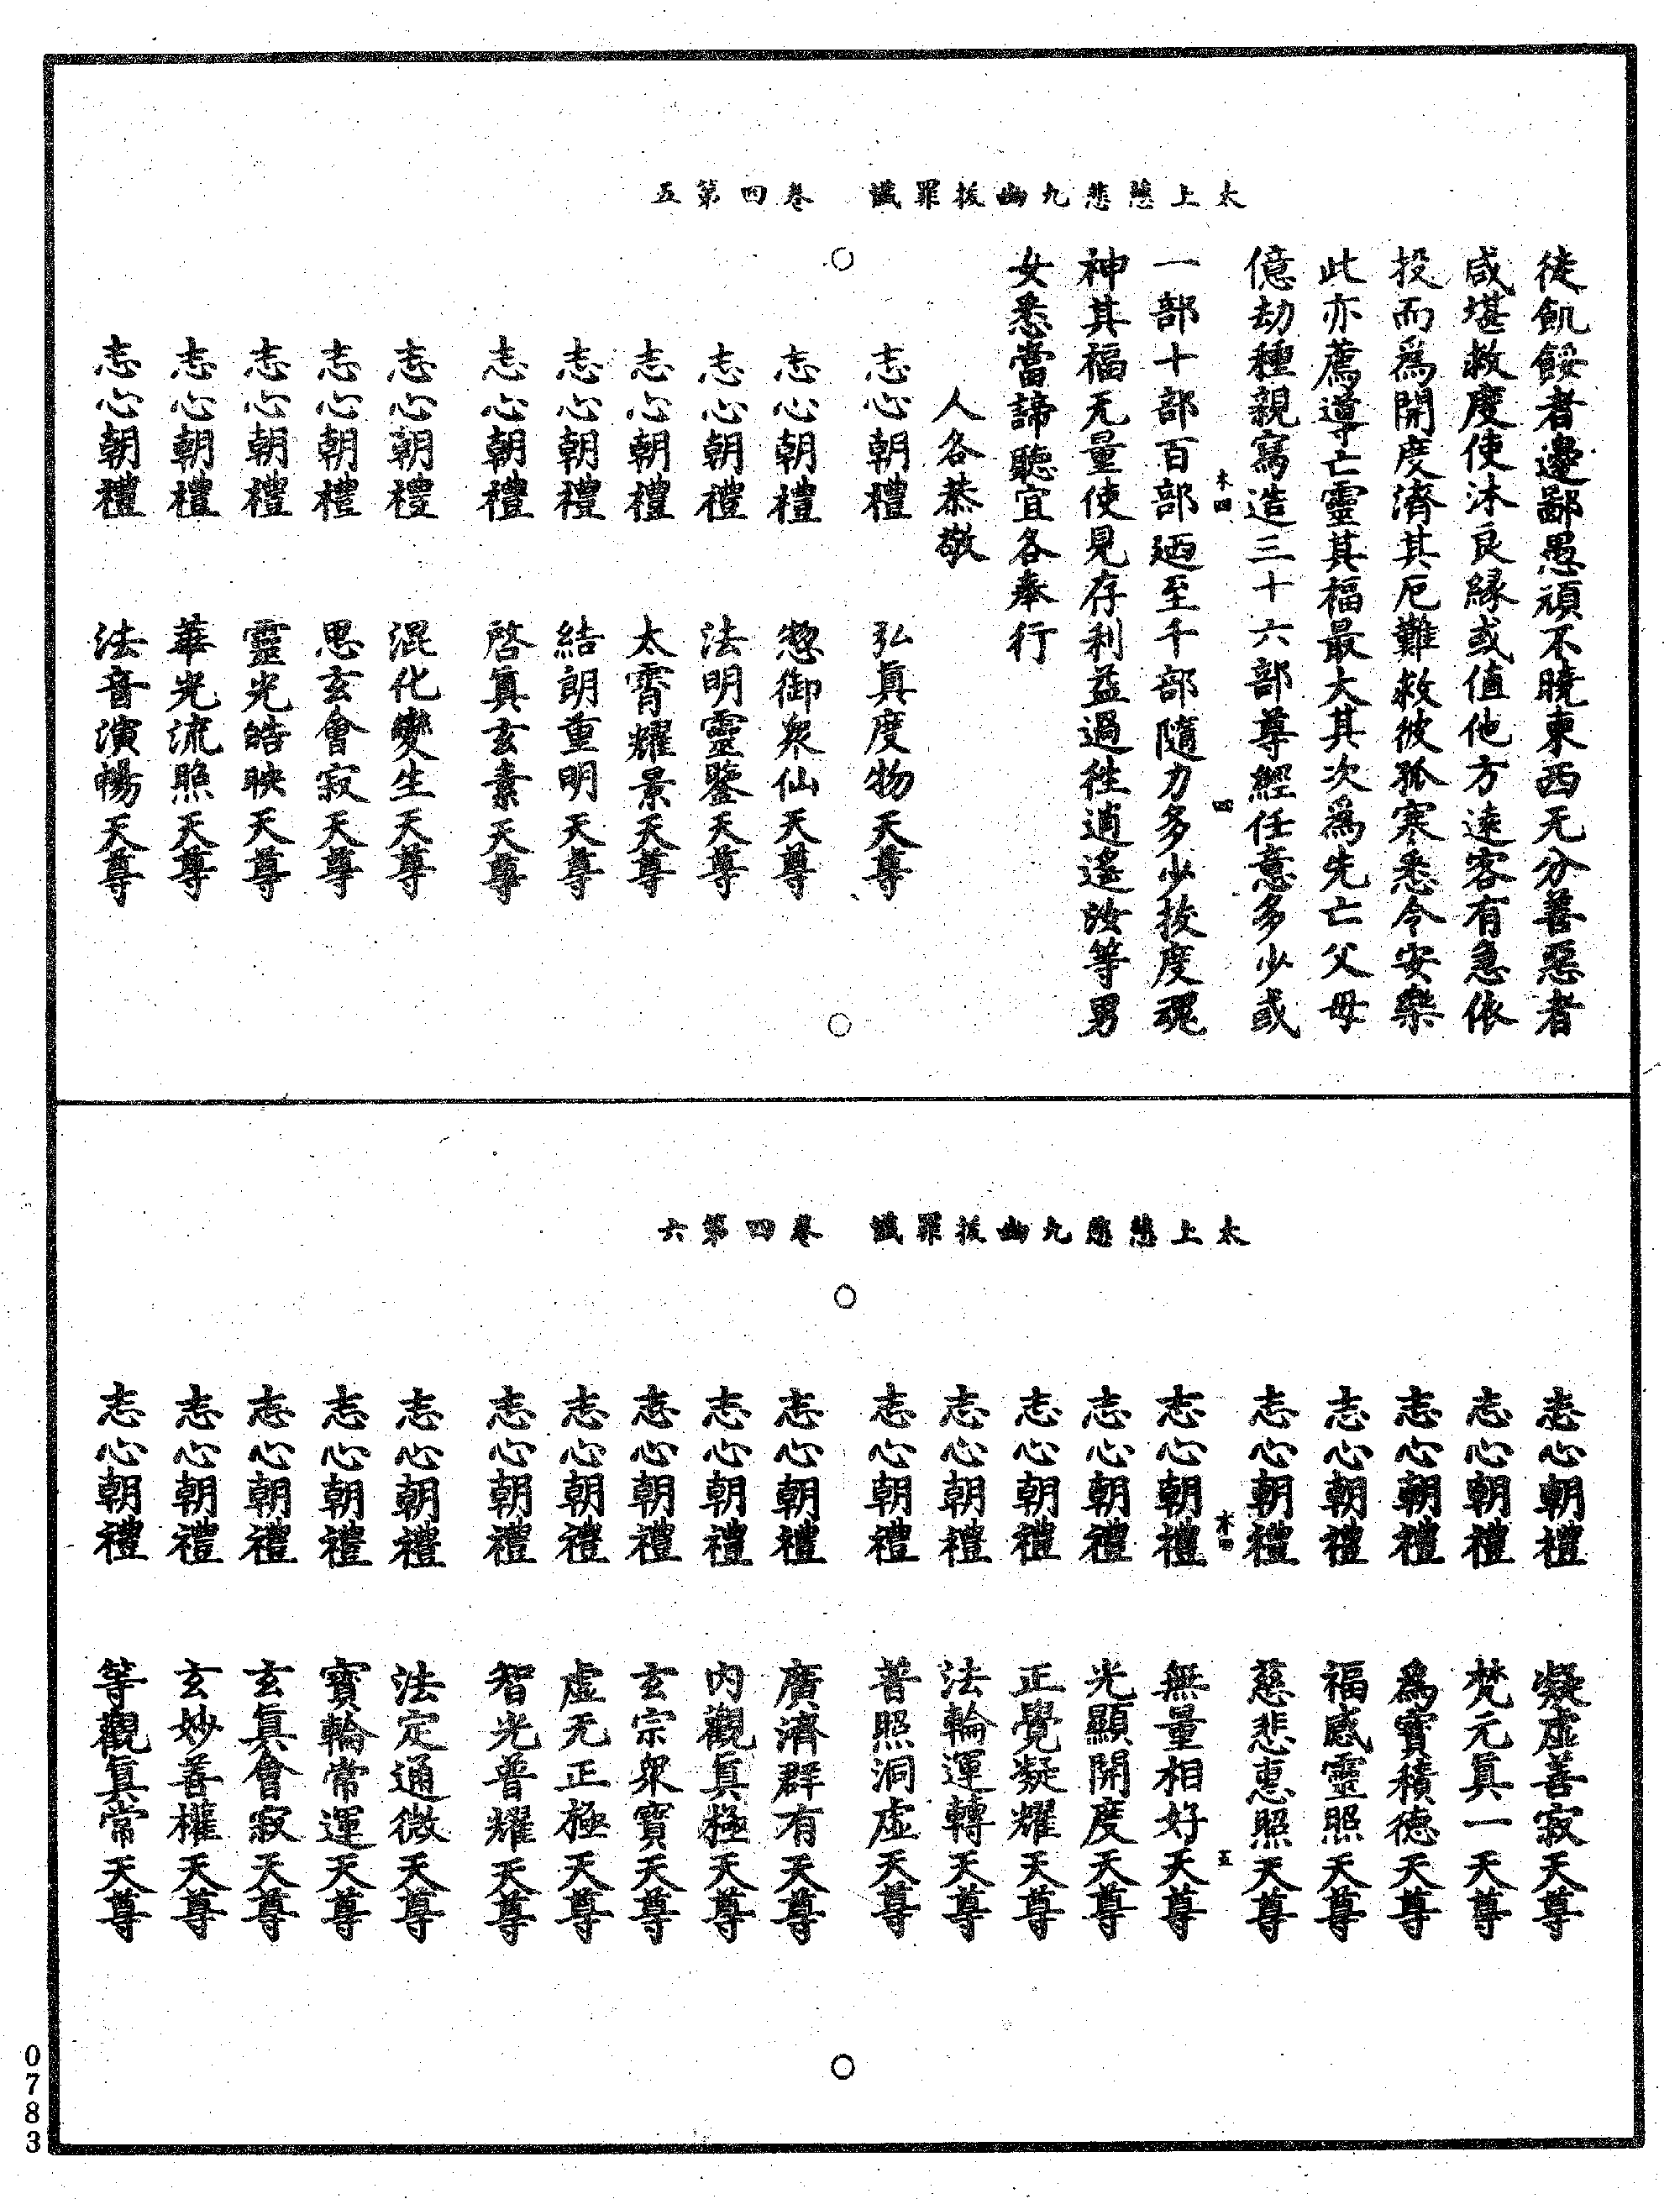 太上慈悲九幽拔罪懺　卷四第五
徒飢餒者邊鄙愚頑不曉東西无分善惡者
咸堪救度使沐良緣或值他方遠客有急依
投而為開度濟其厄難救彼孤寒悉令安樂
此亦薦導亡靈其福最大其次為先亡父母
億劫種親寫造三十六部尊經任意多少或
木四　四
一部十部百部廼至千部隨力多少拔度魂
神其福无量使見存利益過徃逍遙汝等男
女悉當諦聽宜各奉行
人各恭敬
志心朝禮　弘眞度物天尊
志心朝禮　惣御衆仙天尊
志心朝禮　法明靈鑒天尊
志心朝禮　太霄耀景天尊
志心朝禮　結朗重明天尊
志心朝禮　啓眞玄素天尊
志心朝禮　混化變生天尊
志心朝禮　思玄會寂天尊
志心朝禮　靈光皓映天尊
志心朝禮　華光流照天尊
志心朝禮　法音演暢天尊
太上慈悲九幽拔罪懺　卷四第六
志心朝禮　凝虛善寂天尊
志心朝禮　梵元眞一天尊
志心朝禮　為寶積德天尊
志心朝禮　福感靈照天尊
志心朝禮　慈悲惠照天尊
木四　五
志心朝禮　無量相好天尊
志心朝禮　光顯開度天尊
志心朝禮　正覺凝耀天尊
志心朝禮　法輪運轉天尊
志心朝禮　普照洞虛天尊
志心朝禮　廣濟群有天尊
志心朝禮　內觀眞極天尊
志心朝禮　玄宗衆寶天尊
志心朝禮　虛无正極天尊
志心朝禮　智光普耀天尊
志心朝禮　法定通微天尊
志心朝禮　寶輪常運天尊
志心朝禮　玄眞會寂天尊
志心朝禮　玄妙善權天尊
志心朝禮　等觀眞常天尊
0783